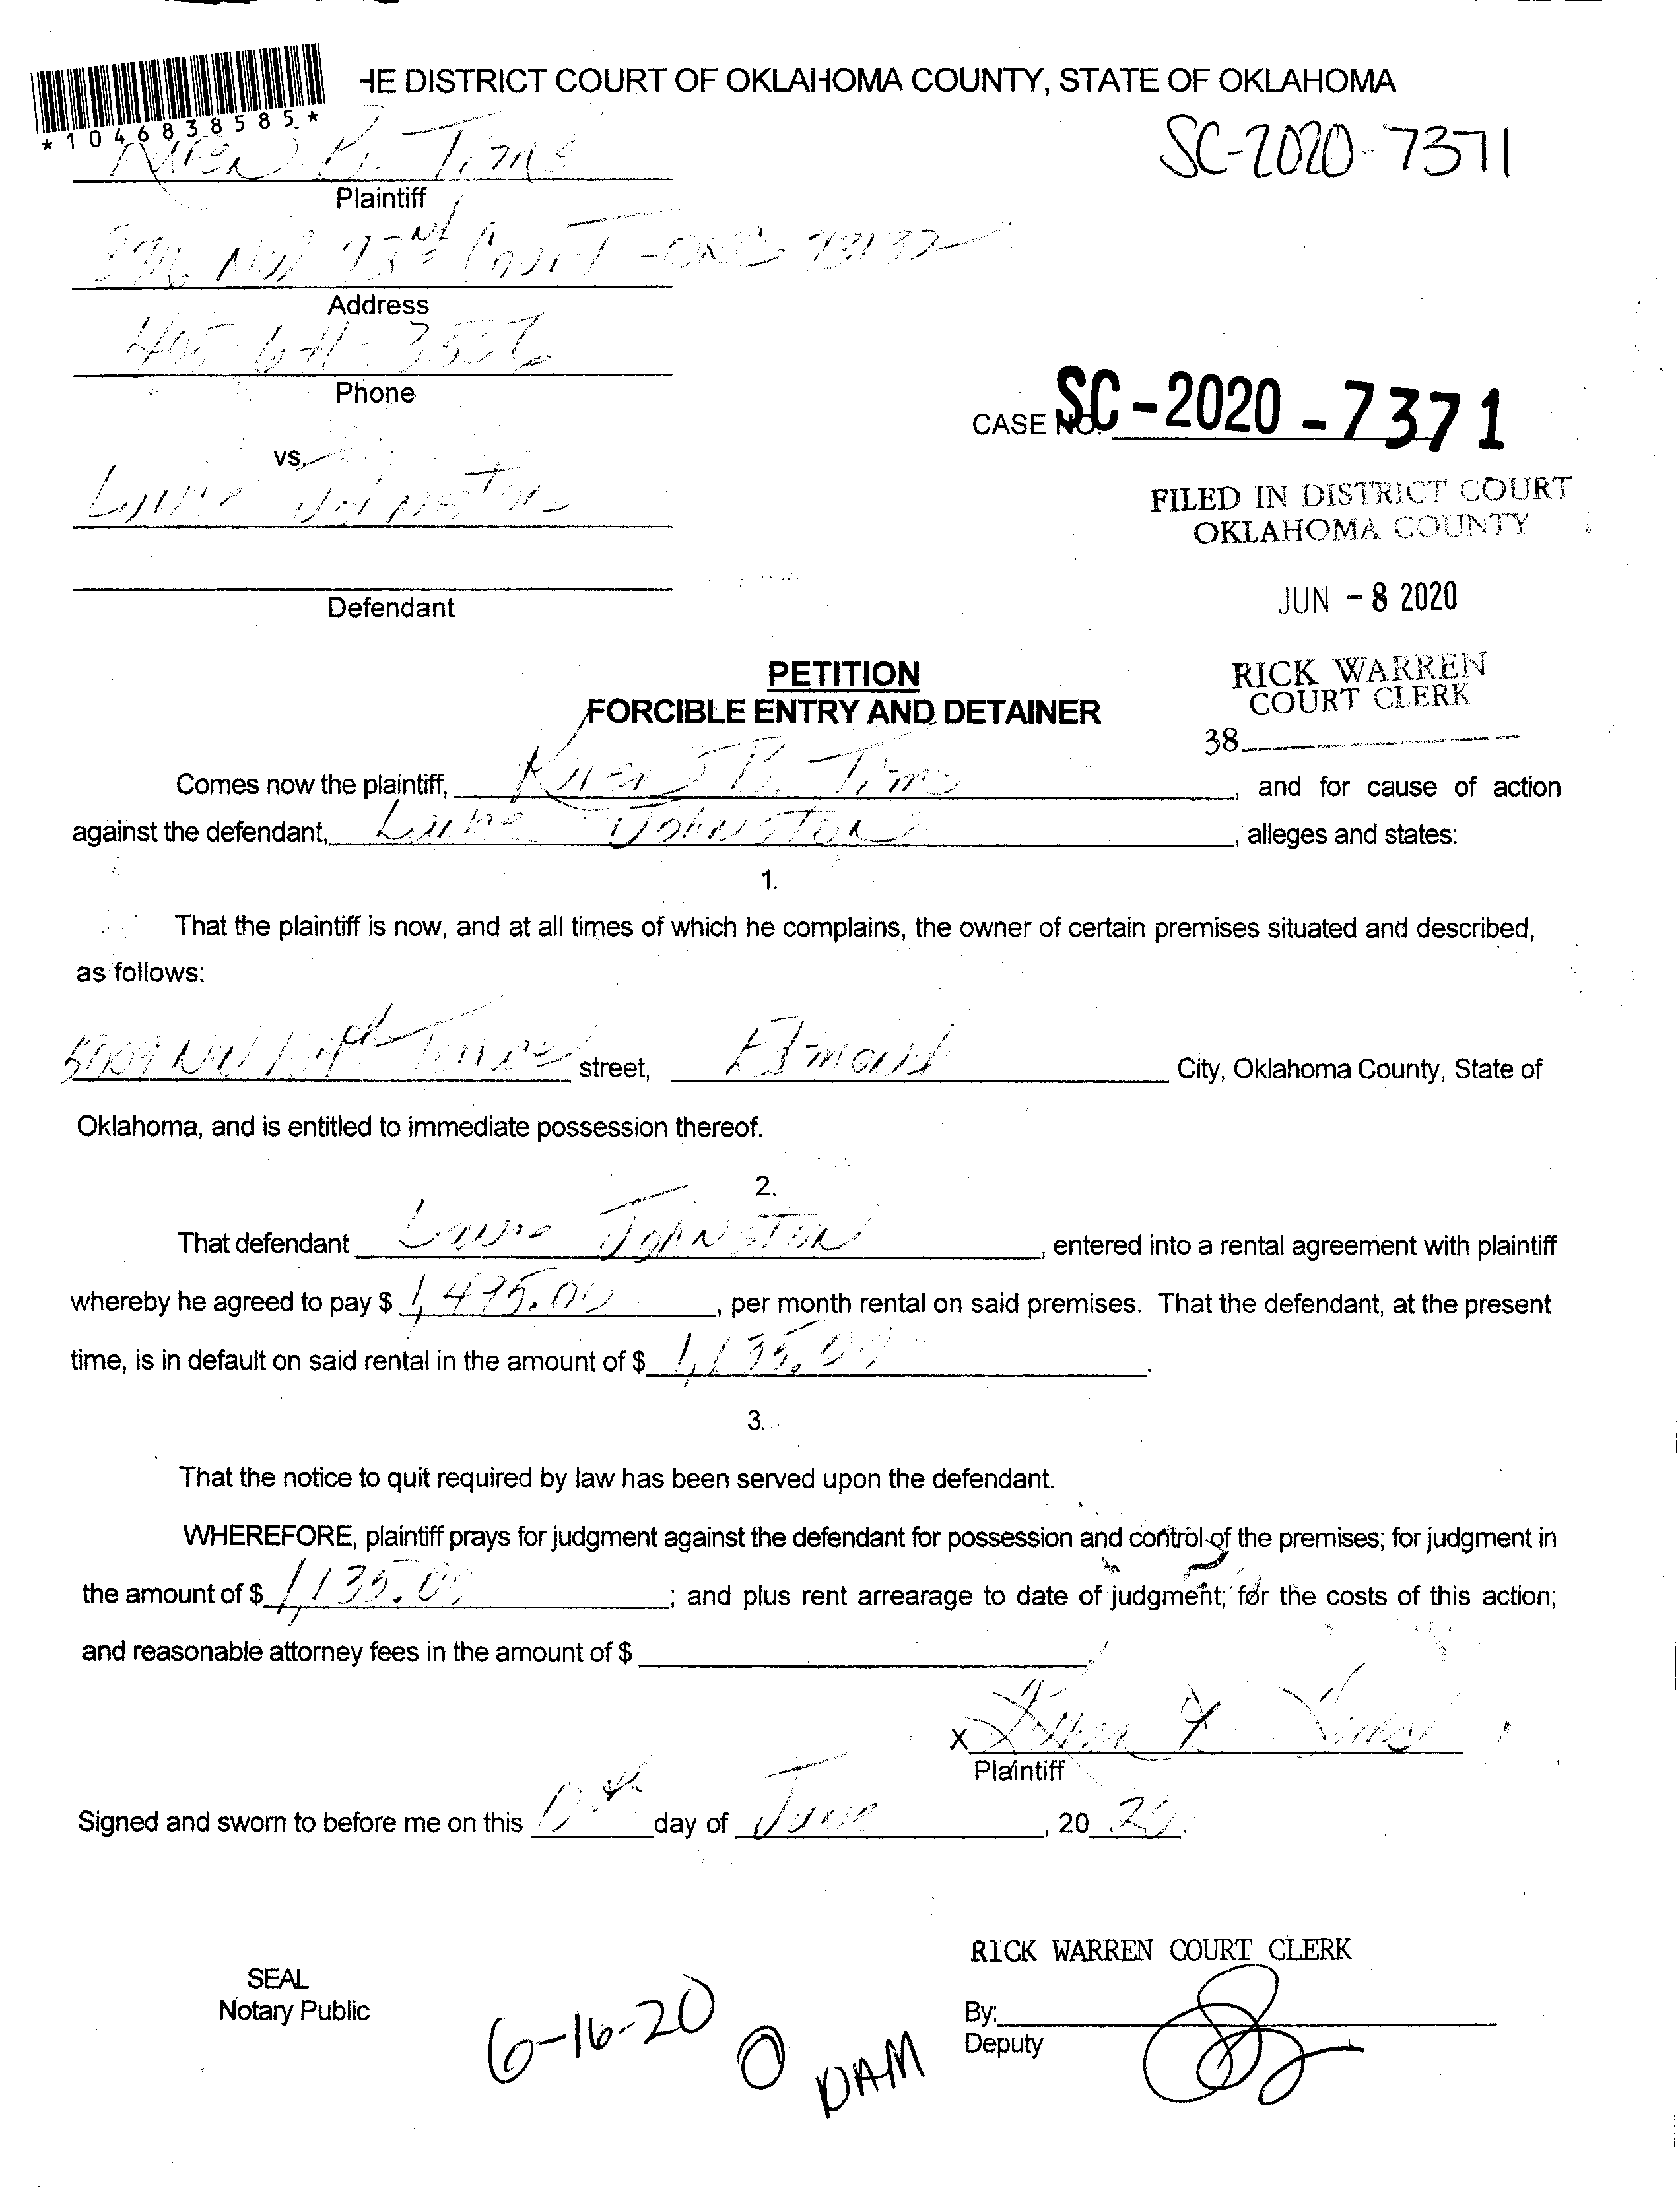 HE DISTRICT COURT OF OKLAHOMA COUNTY, STATE OF OKLAHOMA
*1046838585*
SC-2020-7371
B. Tims
Plaintiff
NW Court - OKC 73132
Address
405-
Phone
CASE NO. SC-2020-7371
vs.
Johnston
FILED IN DISTRICT COURT
OKLAHOMA COUNTY
JUN -8 2020
Defendant
RICK WARREN
COURT CLERK
PETITION
FORCIBLE ENTRY AND DETAINER
38
Comes now the plaintiff, B. Tims, and for cause of action
against the defendant, Johnston, alleges and states:
1.
That the plaintiff is now, and at all times of which he complains, the owner of certain premises situated and described,
as follows:
5009 NW Terrace street, Edmond City, Oklahoma County, State of
Oklahoma, and is entitled to immediate possession thereof.
2.
That defendant Johnston, entered into a rental agreement with plaintiff
whereby he agreed to pay $ 1,495.00, per month rental on said premises. That the defendant, at the present
time, is in default on said rental in the amount of $ 1,135.00.
3.
That the notice to quit required by law has been served upon the defendant.
WHEREFORE, plaintiff prays for judgment against the defendant for possession and control of the premises; for judgment in
the amount of $ 1,135.00; and plus rent arrearage to date of judgment; for the costs of this action;
and reasonable attorney fees in the amount of $
X
Plaintiff
Signed and sworn to before me on this day of June, 20 20.
RICK WARREN COURT CLERK
SEAL
Notary Public
By:
Deputy
6-16-20
O
DAM